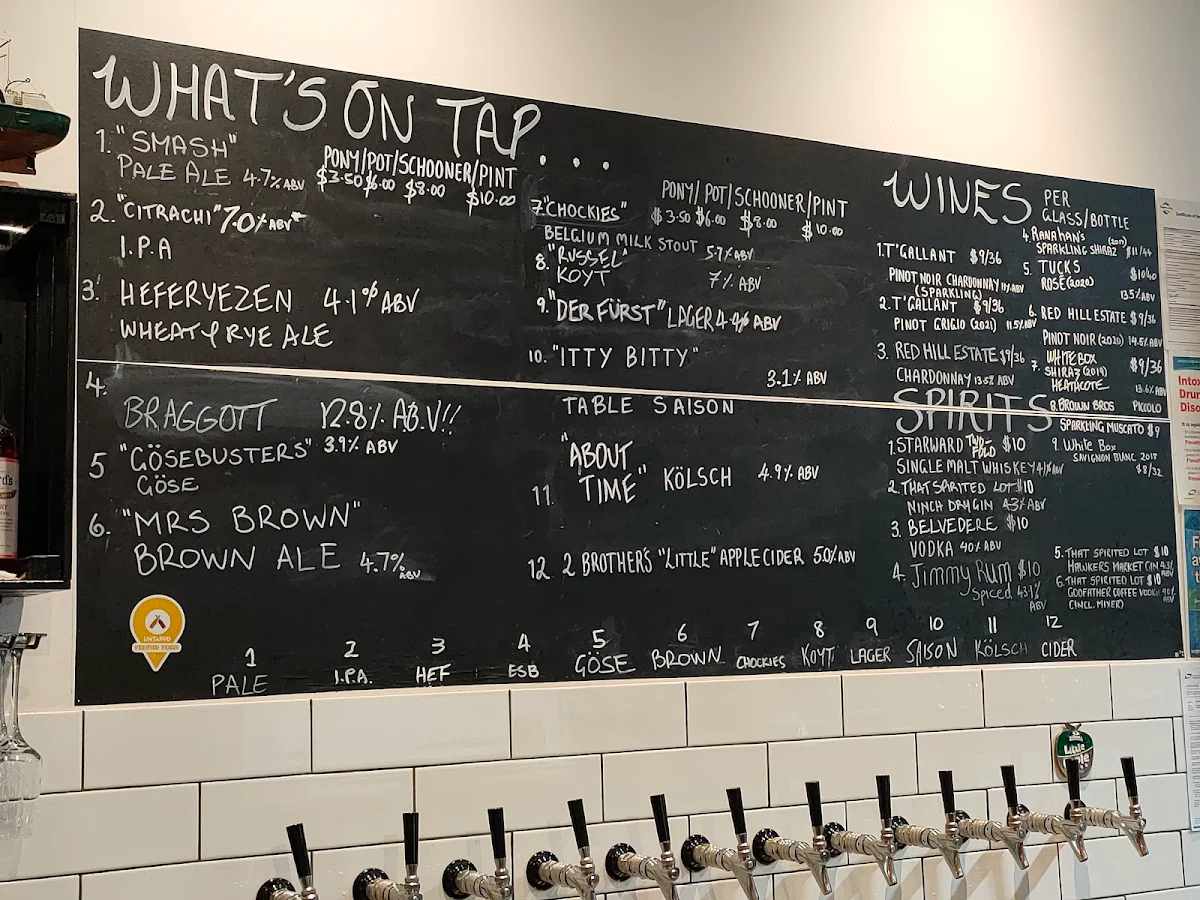 WHAT'S ON TAP...
1. "SMASH"
PALE ALE 4.7% ABV
PONY/POT/SCHOONER/PINT
$3.50 $6.00 $8.00 $10.00
2. "CITRACHI" 7.0% ABV
I.P.A
3. HEFERYEZEN 4.1% ABV
WHEAT & RYE ALE
4. BRAGGOTT 12.8% A.B.V!!
5 "GÖSEBUSTERS" 3.9% ABV
GÖSE
6. "MRS BROWN"
BROWN ALE 4.7% ABV
PONY/POT/SCHOONER/PINT
$3.50 $6.00 $8.00 $10.00
7. "CHOCKIES"
BELGIUM MILK STOUT 5.7% ABV
8. "RUSSEL"
KOYT 7% ABV
9. "DER FÜRST" LAGER 4.4% ABV
10. "ITTY BITTY"
3.1% ABV
TABLE SAISON
11. "ABOUT TIME" KÖLSCH 4.9% ABV
12. 2 BROTHER'S "LITTLE" APPLE CIDER 5.0% ABV
WINES PER GLASS/BOTTLE
1. T'GALLANT $9/36
PINOT NOIR CHARDONNAY 11% ABV
(SPARKLING)
2. T'GALLANT $9/36
PINOT GRIGIO (2021) 11.5% ABV
3. RED HILL ESTATE $9/36
CHARDONNAY 13.5% ABV
4. RANAHAN'S
SPARKLING SHIRAZ $11/44
5. TUCKS $10/40
ROSÉ (2020)
13.5% ABV
6. RED HILL ESTATE $9/36
PINOT NOIR (2020) 14.5% ABV
7. WHITE BOX $9/36
SHIRAZ (2019)
HEATHCOTE 13.6% ABV
8. BROWN BROS PICCOLO
SPARKLING MUSCATO $9
9. White Box
SAVIGNON BLANC 2018
$8/32
SPIRITS
1. STARWARD TWO-FOLD $10
SINGLE MALT WHISKEY 41% ABV
2. THAT SPIRITED LOT $10
NINCH DRY GIN 43% ABV
3. BELVEDERE $10
VODKA 40% ABV
4. Jimmy Rum $10
Spiced 43.1% ABV
5. THAT SPIRITED LOT $10
HAWKERS MARKET GIN
6. THAT SPIRITED LOT $10
GODFATHER COFFEE VODKA
(INCL. MIXER)
UNTAPPD
VERIFIED VENUE
1 2 3 4 5 6 7 8 9 10 11 12
PALE I.P.A. HEF ESB GÖSE BROWN CHOCKIES KOYT LAGER SAISON KÖLSCH CIDER
Little